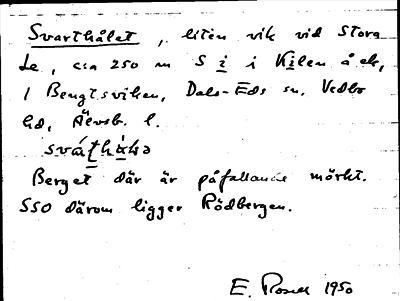 Svarthålet, liten vik vid Stora
Le, c:a 250 m S i i Kilen å ek,
i Bengtsviken, Dals-Eds sn, Vedbo
hd, Älvsb. l.
Berget där är påfallande mörkt.
SSO därom ligger Rödbergen.
E. 1950